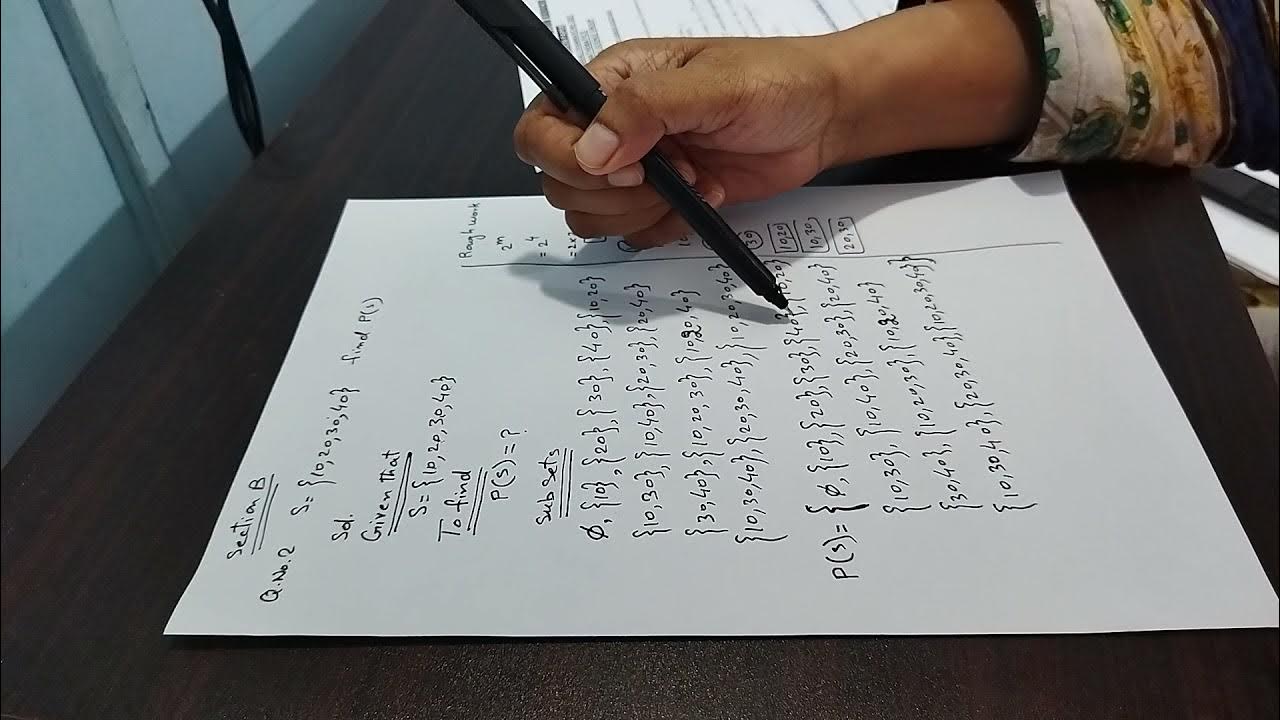 Section B
Q.No.2 S= {10,20,30,40} find P(s)
Sol.
Given that
S= {10,20,30,40}
To find
P(s) = ?
Sub sets
ϕ, {10}, {20}, {30}, {40} {10,20}
{10,30}, {10,40}, {20,30}, {20,40}
{30,40}, {10,20,30}, {10,20,40}
{10,30,40}, {20,30,40}, {10,20,30,40
P(s) = { ϕ, {10}, {20} {30}, {40}, 10,20}
{10,30}, {10,40}, {20,30}, {20,40}
{30,40}, {10,20,30} {10,20,40}
{10,30,40}, {20,30,40}, {10,20,30,40}}
Rough work
2ᵐ
= 2⁴
= 2x2
30
10,20
10,30
20,30